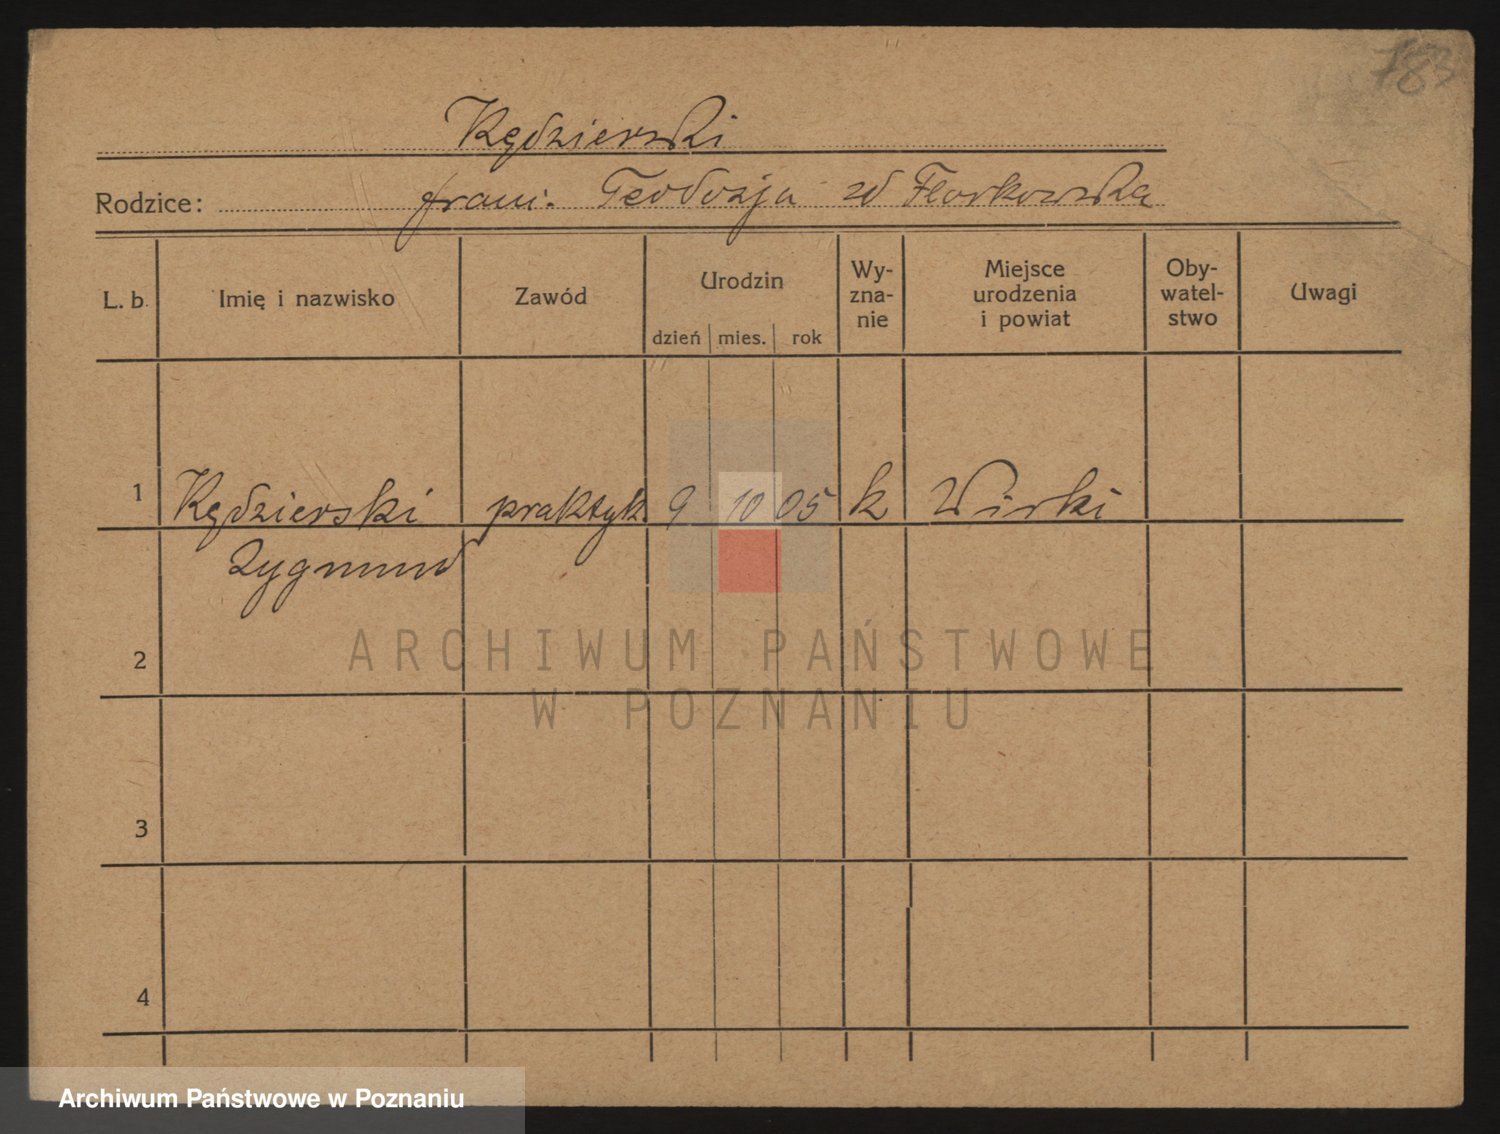 783
Kędzierski
Rodzice: franc. Teodozja zd Florkowska
L. b. Imię i nazwisko Zawód Urodzin dzień mies. rok Wy-zna-nie Miejsce urodzenia i powiat Oby-watel-stwo Uwagi
1 Kędzierski praktyk. 9 10 05 k Wirki
Zygmund
2
ARCHIWUM PAŃSTWOWE
W POZNANIU
3
4
Archiwum Państwowe w Poznaniu